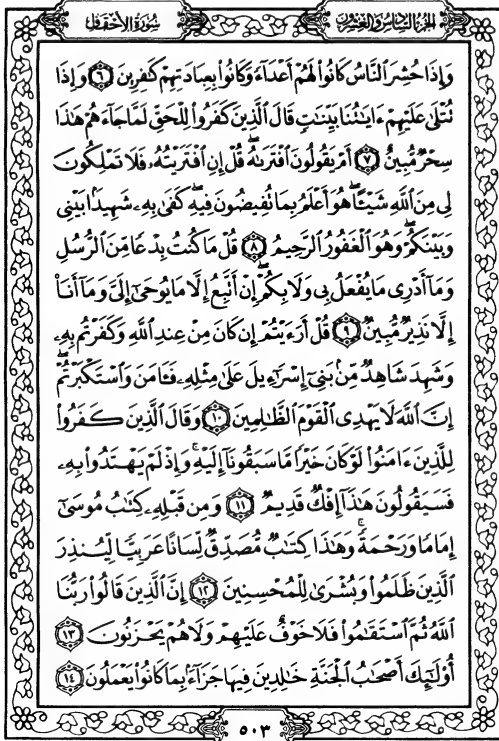 سورة الأحقاف
الجزء السادس والعشرون
وَإِذَا حُشِرَ ٱلنَّاسُ كَانُوا۟ لَهُمْ أَعْدَآءً وَكَانُوا۟ بِعِبَادَتِهِمْ كَـٰفِرِينَ ٦ وَإِذَا
تُتْلَىٰ عَلَيْهِمْ ءَايَـٰتُنَا بَيِّنَـٰتٍ قَالَ ٱلَّذِينَ كَفَرُوا۟ لِلْحَقِّ لَمَّا جَآءَهُمْ هَـٰذَا
سِحْرٌ مُّبِينٌ ٧ أَمْ يَقُولُونَ ٱفْتَرَىٰهُ ۖ قُلْ إِنِ ٱفْتَرَيْتُهُۥ فَلَا تَمْلِكُونَ
لِى مِنَ ٱللَّهِ شَيْـًٔا ۖ هُوَ أَعْلَمُ بِمَا تُفِيضُونَ فِيهِ ۖ كَفَىٰ بِهِۦ شَهِيدًۢا بَيْنِى
وَبَيْنَكُمْ ۖ وَهُوَ ٱلْغَفُورُ ٱلرَّحِيمُ ٨ قُلْ مَا كُنتُ بِدْعًا مِّنَ ٱلرُّسُلِ
وَمَآ أَدْرِى مَا يُفْعَلُ بِى وَلَا بِكُمْ ۖ إِنْ أَتَّبِعُ إِلَّا مَا يُوحَىٰٓ إِلَىَّ وَمَآ أَنَا۠
إِلَّا نَذِيرٌ مُّبِينٌ ٩ قُلْ أَرَءَيْتُمْ إِن كَانَ مِنْ عِندِ ٱللَّهِ وَكَفَرْتُم بِهِۦ
وَشَهِدَ شَاهِدٌ مِّنۢ بَنِىٓ إِسْرَٰٓءِيلَ عَلَىٰ مِثْلِهِۦ فَـَٔامَنَ وَٱسْتَكْبَرْتُمْ ۖ
إِنَّ ٱللَّهَ لَا يَهْدِى ٱلْقَوْمَ ٱلظَّـٰلِمِينَ ١٠ وَقَالَ ٱلَّذِينَ كَفَرُوا۟
لِلَّذِينَ ءَامَنُوا۟ لَوْ كَانَ خَيْرًا مَّا سَبَقُونَآ إِلَيْهِ ۚ وَإِذْ لَمْ يَهْتَدُوا۟ بِهِۦ
فَسَيَقُولُونَ هَـٰذَآ إِفْكٌ قَدِيمٌ ١١ وَمِن قَبْلِهِۦ كِتَـٰبُ مُوسَىٰٓ
إِمَامًا وَرَحْمَةً ۚ وَهَـٰذَا كِتَـٰبٌ مُّصَدِّقٌ لِّسَانًا عَرَبِيًّا لِّيُنذِرَ
ٱلَّذِينَ ظَلَمُوا۟ وَبُشْرَىٰ لِلْمُحْسِنِينَ ١٢ إِنَّ ٱلَّذِينَ قَالُوا۟ رَبُّنَا
ٱللَّهُ ثُمَّ ٱسْتَقَـٰمُوا۟ فَلَا خَوْفٌ عَلَيْهِمْ وَلَا هُمْ يَحْزَنُونَ ١٣
أُو۟لَـٰٓئِكَ أَصْحَـٰبُ ٱلْجَنَّةِ خَـٰلِدِينَ فِيهَا جَزَآءًۢ بِمَا كَانُوا۟ يَعْمَلُونَ ١٤
٥٠٣